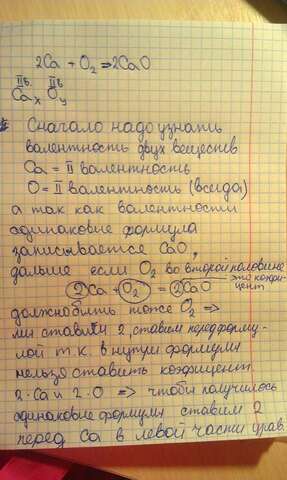 2Ca + O₂ ⇒ 2CaO
IIв. IIв
Caₓ Oᵧ
Сначало надо узнать
валентность двух веществ
Ca = II валентность
O = II валентность (всегда)
а так как валентности
одинаковые формула
записывается CaO,
дальше если O₂ во второй половине
это коэфи-
2Ca + O₂ = 2CaO циент
должно быть тоже O₂ ⇒
мы ставили 2, ставим перед форму-
лой т.к. внутри формулы
нельзя ставить коэфициент
2·Ca и 2·O ⇒ чтобы получилось
одинаковые формулы ставим 2
перед Ca в левой части урав.